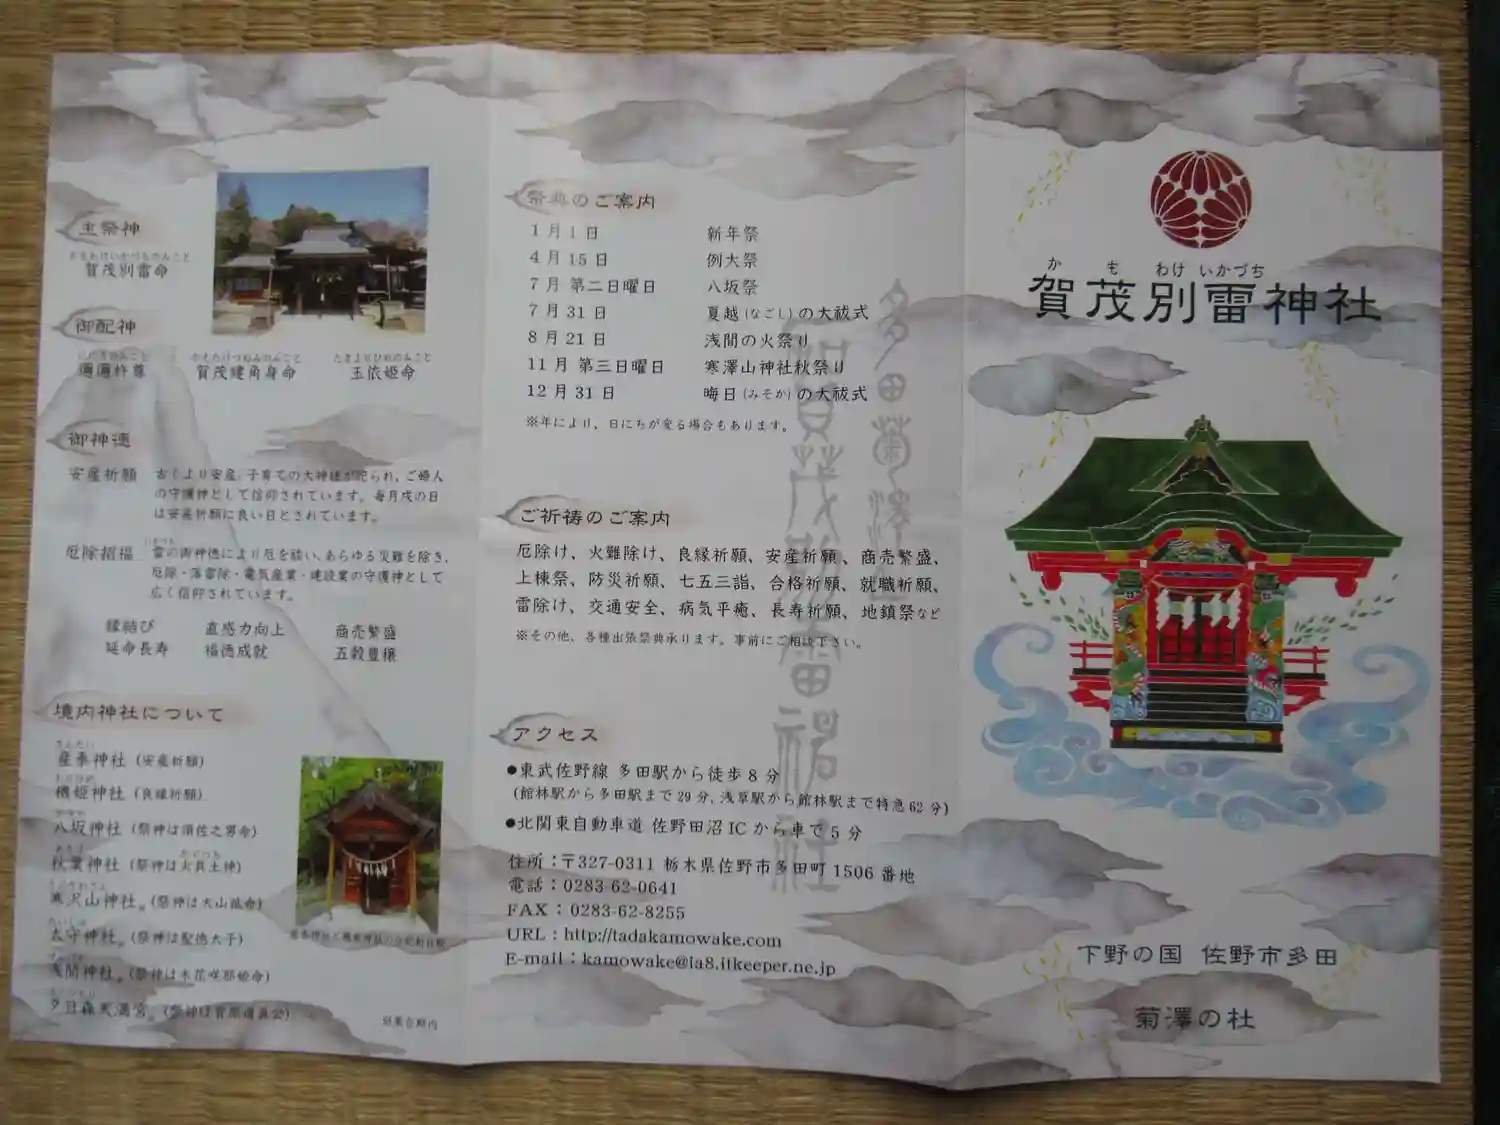 主祭神
かもわけいかづちのみこと
賀茂別雷命
御配神
ににぎのみこと
邇邇杵尊
かもたけつぬみのみこと
賀茂建角身命
たまよりひめのみこと
玉依姫命
御神徳
安産祈願
古くより安産、子育ての大神様が祀られ、ご婦人
の守護神として信仰されています。毎月戌の日
は安産祈願に良い日とされています。
厄除招福
いかづち
雷の御神徳により厄を祓い、あらゆる災難を除き、
厄除・落雷除・電気産業・建設業の守護神として
広く信仰されています。
縁結び 直感力向上 商売繁盛
延命長寿 福徳成就 五穀豊穣
境内神社について
産泰神社（安産祈願）
機姫神社（良縁祈願）
八坂神社（祭神は須佐之男命）
秋葉神社（祭神は火具土神）
寒沢山神社。（祭神は大山祗命）
太守神社。（祭神は聖徳太子）
浅間神社。（祭神は木花咲耶姫命）
夕日森天満宮。（祭神は菅原道真公）
祭典のご案内
1月1日 新年祭
4月15日 例大祭
7月 第二日曜日 八坂祭
7月31日 夏越（なごし）の大祓式
8月21日 浅間の火祭り
11月 第三日曜日 寒澤山神社秋祭り
12月31日 晦日（みそか）の大祓式
※年により、日にちが変る場合もあります。
ご祈祷のご案内
厄除け、火難除け、良縁祈願、安産祈願、商売繁盛、
上棟祭、防災祈願、七五三詣、合格祈願、就職祈願、
雷除け、交通安全、病気平癒、長寿祈願、地鎮祭など
※その他、各種出張祭典承ります。事前にご相談下さい。
アクセス
●東武佐野線 多田駅から徒歩8分
（館林駅から多田駅まで29分、浅草駅から館林駅まで特急62分）
●北関東自動車道 佐野田沼ICから車で5分
住所：〒327-0311 栃木県佐野市多田町1506番地
電話：0283-62-0641
FAX：0283-62-8255
URL：http://tadakamowake.com
E-mail：kamowake@ia8.itkeeper.ne.jp
か も わけ いかづち
賀茂別雷神社
下野の国 佐野市多田
菊澤の杜